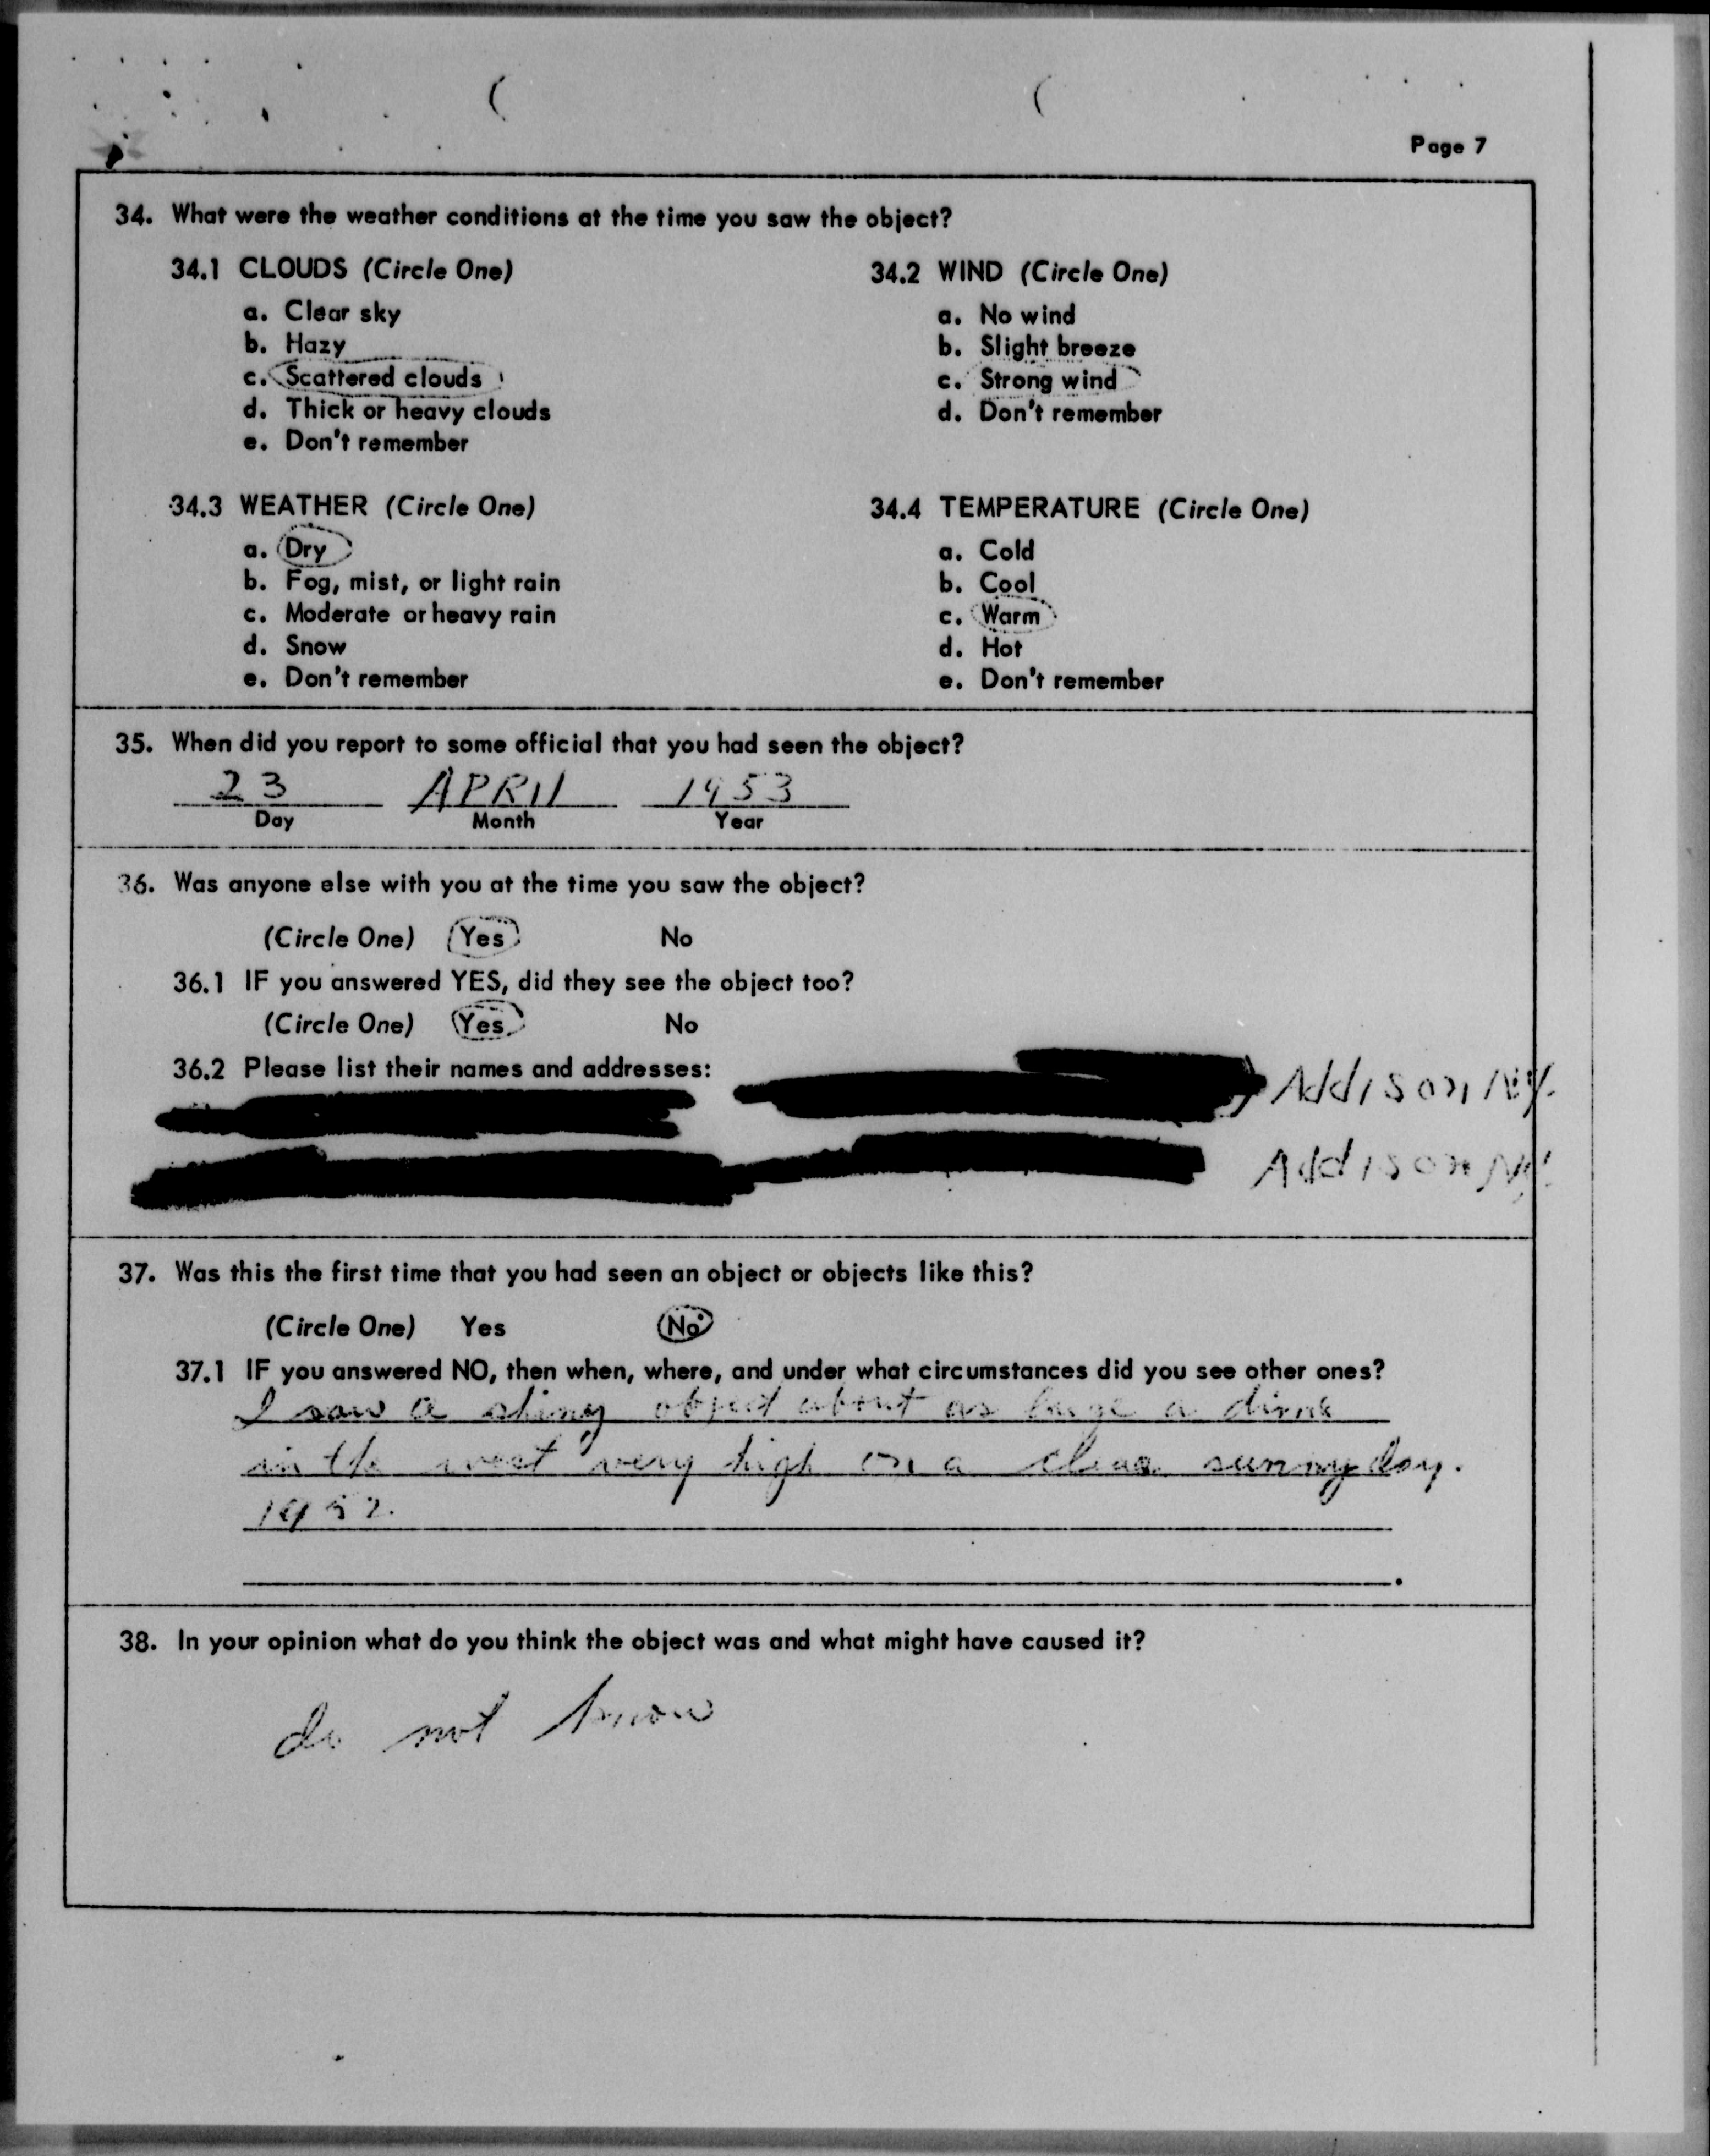 Page 7
34. What were the weather conditions at the time you saw the object?
34.1 CLOUDS (Circle One)
a. Clear sky
b. Hazy
c. Scattered clouds
d. Thick or heavy clouds
e. Don't remember
34.2 WIND (Circle One)
a. No wind
b. Slight breeze
c. Strong wind
d. Don't remember
34.3 WEATHER (Circle One)
a. Dry
b. Fog, mist, or light rain
c. Moderate or heavy rain
d. Snow
e. Don't remember
34.4 TEMPERATURE (Circle One)
a. Cold
b. Cool
c. Warm
d. Hot
e. Don't remember
35. When did you report to some official that you had seen the object?
23 APRIl 1953
Day Month Year
36. Was anyone else with you at the time you saw the object?
(Circle One) Yes No
36.1 IF you answered YES, did they see the object too?
(Circle One) Yes No
36.2 Please list their names and addresses:
Addison NY.
Addison NY.
37. Was this the first time that you had seen an object or objects like this?
(Circle One) Yes No
37.1 IF you answered NO, then when, where, and under what circumstances did you see other ones?
I saw a shiny object about as large a dime
in the west very high on a clear sunny day.
1952.
38. In your opinion what do you think the object was and what might have caused it?
do not know